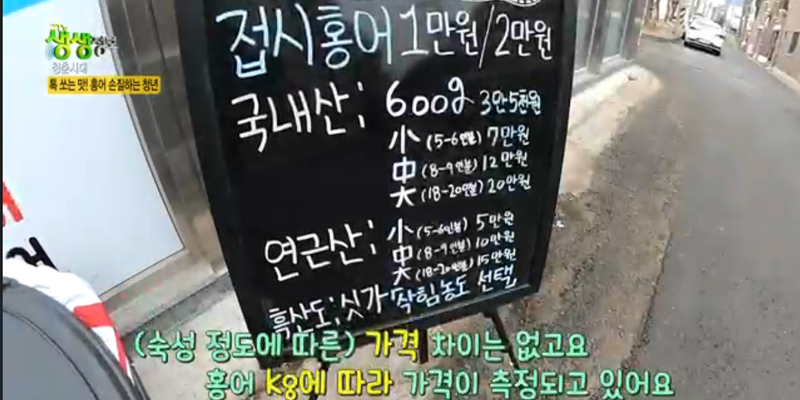 생생정보
청춘시대
톡 쏘는 맛! 홍어 손질하는 청년
접시홍어 1만원/2만원
국내산: 600g 3만5천원
小 (5-6인분) 7만원
中 (8-9인분) 12만원
大 (18-20인분) 20만원
연근산: 小 (5-6인분) 5만원
中 (8-9인분) 10만원
大 (18-20인분) 15만원
흑산도; 싯가 삭힘농도 선택
(숙성 정도에 따른) 가격 차이는 없고요
홍어 kg에 따라 가격이 측정되고 있어요